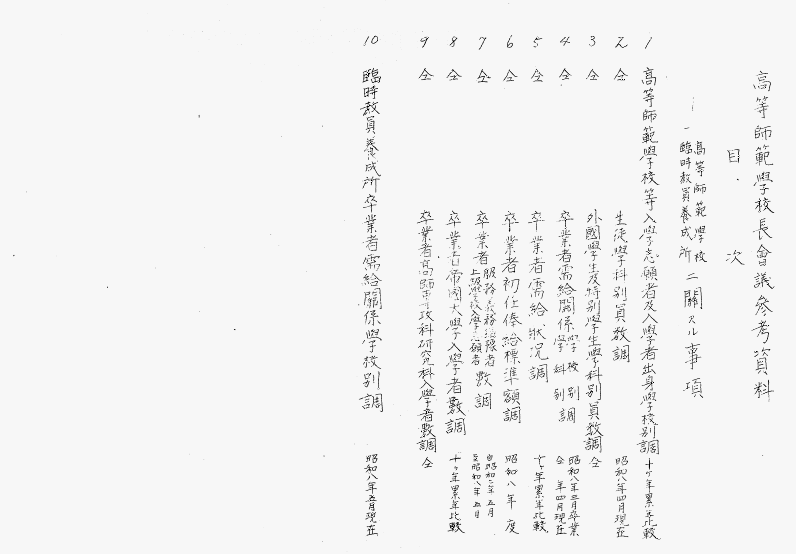 高等師範學校長會議參考資料
目次
一 高等師範學校 臨時教員養成所 ニ關スル事項
1 高等師範學校等入學志願者及入學者出身學校別調 十ヶ年累年比較
2 仝 生徒學科別員數調 昭和八年四月現在
3 仝 外國學生及特別學生學科別員數調 仝
4 仝 卒業者需給關係 學校別 學科別 調 昭和八年三月卒業 仝年四月現在
5 仝 卒業者需給狀況調 十ヶ年累年比較
6 仝 卒業者初任俸給標準額調 昭和八年度
7 仝 卒業者 服務義務猶豫者 上級學校入學志願者 數調 自昭和 年五月 至昭和八年五月
8 仝 卒業者帝國大學入學者數調 十ヶ年累年比較
9 仝 卒業者高師專攻科研究科入學者數調 仝
10 臨時教員養成所卒業者需給關係學校別調 昭和八年五月現在